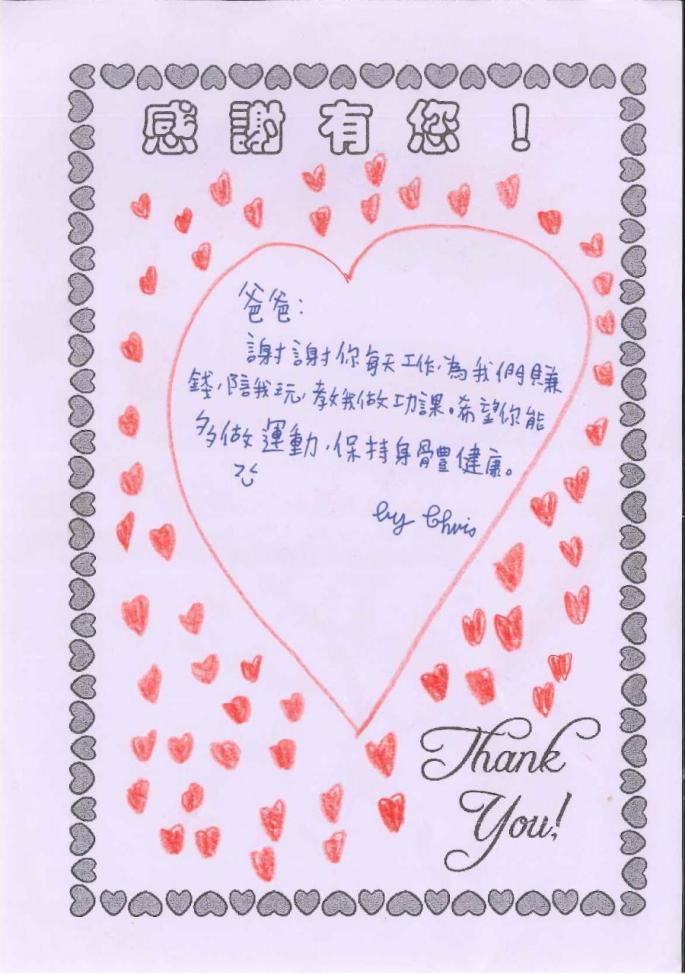 感謝有您！
爸爸：
謝謝你每天工作，為我們賺
錢，陪我玩，教我做功課。希望你能
多做運動，保持身體健康。
by Chris
Thank
You!